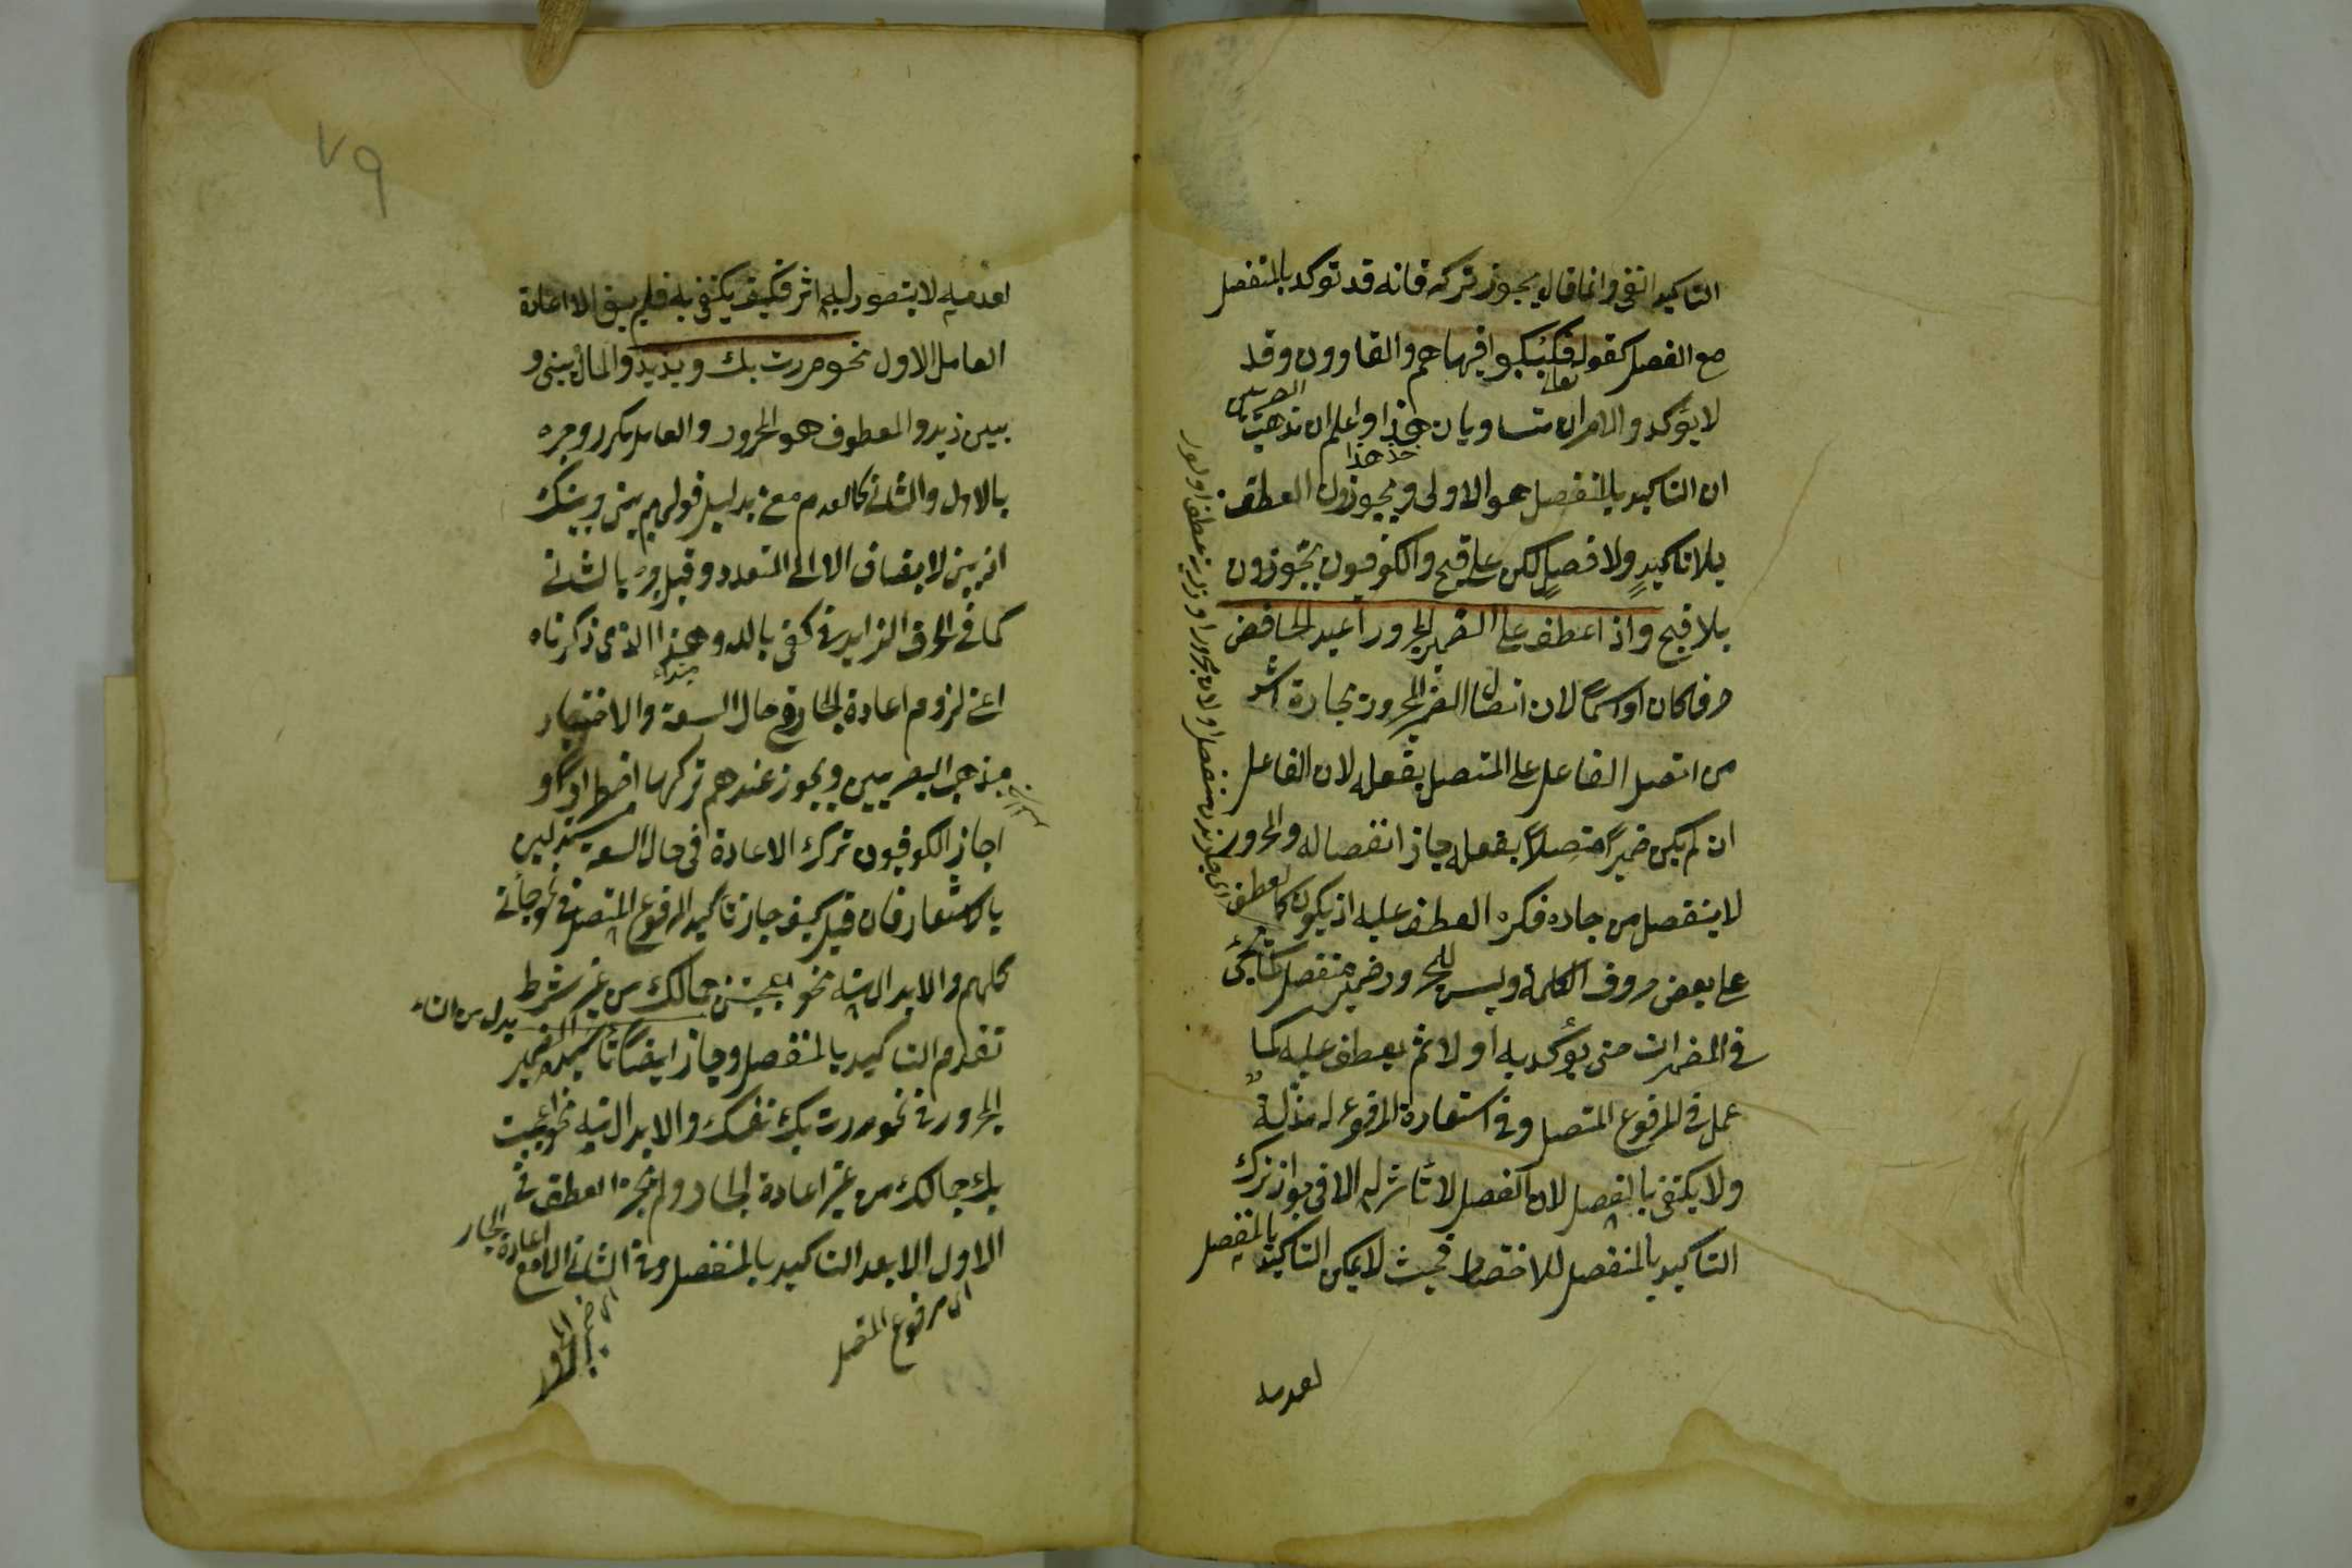 التاكيد انتهى وانما قال يجوز تركه فانه قد توكد بالمنفصل
مع الفصل كقوله تعالى فكبكبوا فيها هم والغاوون وقد
لا يؤكد والامران متساويان هذا واعلم ان مذهب البصريين
خذ هذا
ان التاكيد بالمنفصل هو الاولى ويجوزون العطف
بلا تاكيد ولا فصل لكن على قبح والكوفيون يجوزون
بلا قبح واذا عطف على الضمير المجرور اعيد الخافض
حرفا كان او اسما لان اتصال الضمير المجرور بجاره اشد
من اتصل الفاعل على المتصل بفعله لان الفاعل
ان لم يكن ضميرا متصلا بفعله جاز انفصاله والمجرور
لا ينفصل من جاره فكره العطف عليه اذ يكون كالعطف
على بعض حروف الكلمة وليس للمجرور ضمير منفصل كما يجئ
في المضمرات حتى يؤكد به اولا ثم يعطف عليه كما
عمل في المرفوع المتصل وفي استعارة المرفوع له مذلة
ولا يكتفى بالفصل لان الفصل لا تاثير له الا في جواز ترك
التاكيد بالمنفصل للاختصار فحيث لا يمكن التاكيد بالمنفصل
لعدمه
٧٩
لعدميه لا يتصور له اثر فكيف يكتفى به فلم يبق الا اعادة
العامل الاول نحو مررت بك وبزيد والمال بيني و
بين زيد والمعطوف هو المجرور والعامل مكرر وجره
بالاول والثاني كالعدم معنى بدليل قولهم بيني وبينك
اذ بين لا يضاف الا الى المتعدد وقيل جر بالثاني
كما في الحرف الزايد في كفى بالله وهذا الذي ذكرناه
مبتداء
اعني لزوم اعادة الجار في حال السعة والاختيار
مذهب البصريين ويجوز عندهم تركها اضطرارا و
اجاز الكوفيون ترك الاعادة في حال السعة مستدلين
بالاشعار فان قيل كيف جاز تاكيد المرفوع المتصل في نحو جاؤني
كلهم والابدال منه نحو اعجبتني جمالك من غير شرط
بدل من التاء
تقدم التاكيد بالمنفصل وجاز ايضا تاكيد الضمير
المجرور في نحو مررت بك نفسك والابدال منه نحو اعجبت
بك جمالك من غير اعادة الجار ولم يجز العطف في
الاول الا بعد التاكيد بالمنفصل وفي الثاني الا مع اعادة الجار
اى مرفوع المتصل